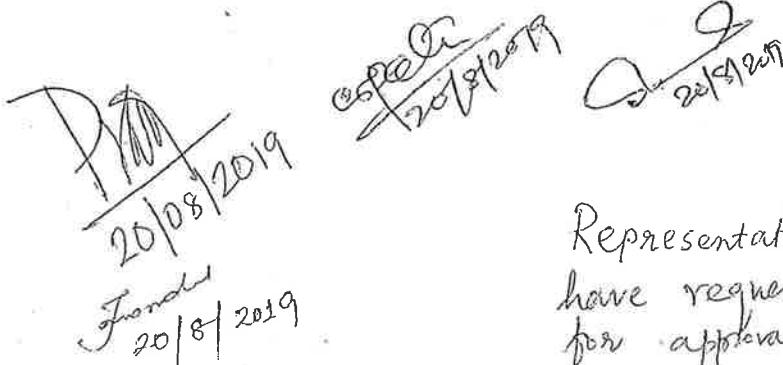 20/8/2019
20/8/2019
20/08/2019
20/8/2019
Representat
have reque
for approva